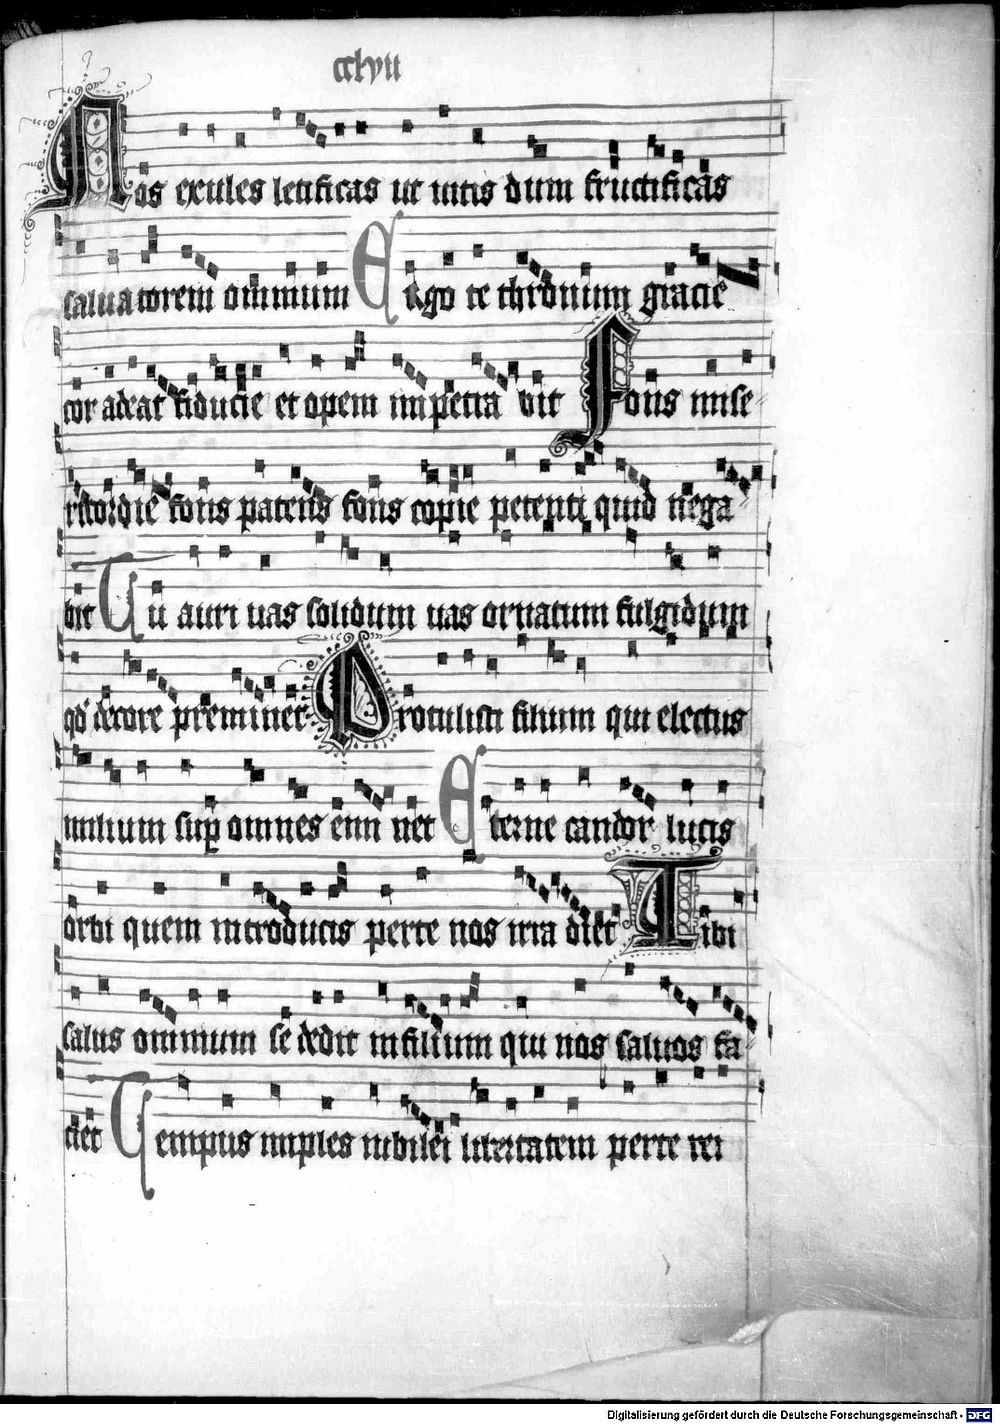 cclvii
Nos exules letificas ut vitis dum fructificas
salvatorem omnium Ergo te thronum gracie
cor adeat fiducie et opem impetra bit Fons mise-
ricordie fons patens fons copie petenti quid nega-
bit Tu auri vas solidum vas ornatum fulgidum
decore preminet Protulisti filium qui electus
milium sup omnes eni net Eterne candor lucis
orbi quem introducis perte nos irra diet Tibi
salus omnium se dedit infilium qui nos salvos fa-
ciet Tempus imples iubilei libertatem perte rei
Digitalisierung gefördert durch die Deutsche Forschungsgemeinschaft - DFG